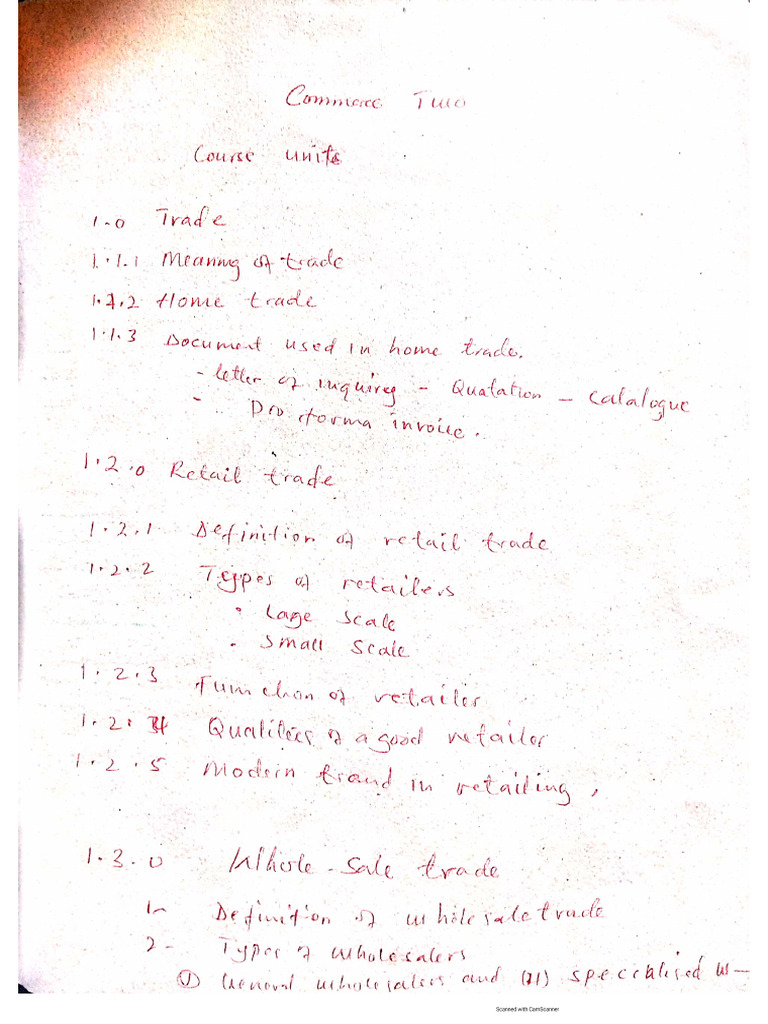 Commerce Two
Course units
1.0 Trade
1.1.1 Meaning of trade
1.1.2 Home trade
1.1.3 Document used in home trade.
- letter of inquirey - Quatation - Catalogue
- Pro forma invoice.
1.2.0 Retail trade
1.2.1 Definition of retail trade
1.2.2 Types of retailers
• Lage scale
• Small scale
1.2.3 Function of retailer
1.2.4 Qualities of a good retailor
1.2.5 Modern traud in retailing,
1.3.0 Whole-sale trade
1- Definition of wholesale trade
2- Types of wholesalers
① General wholesalers and (21) specialised w-
Scanned with CamScanner